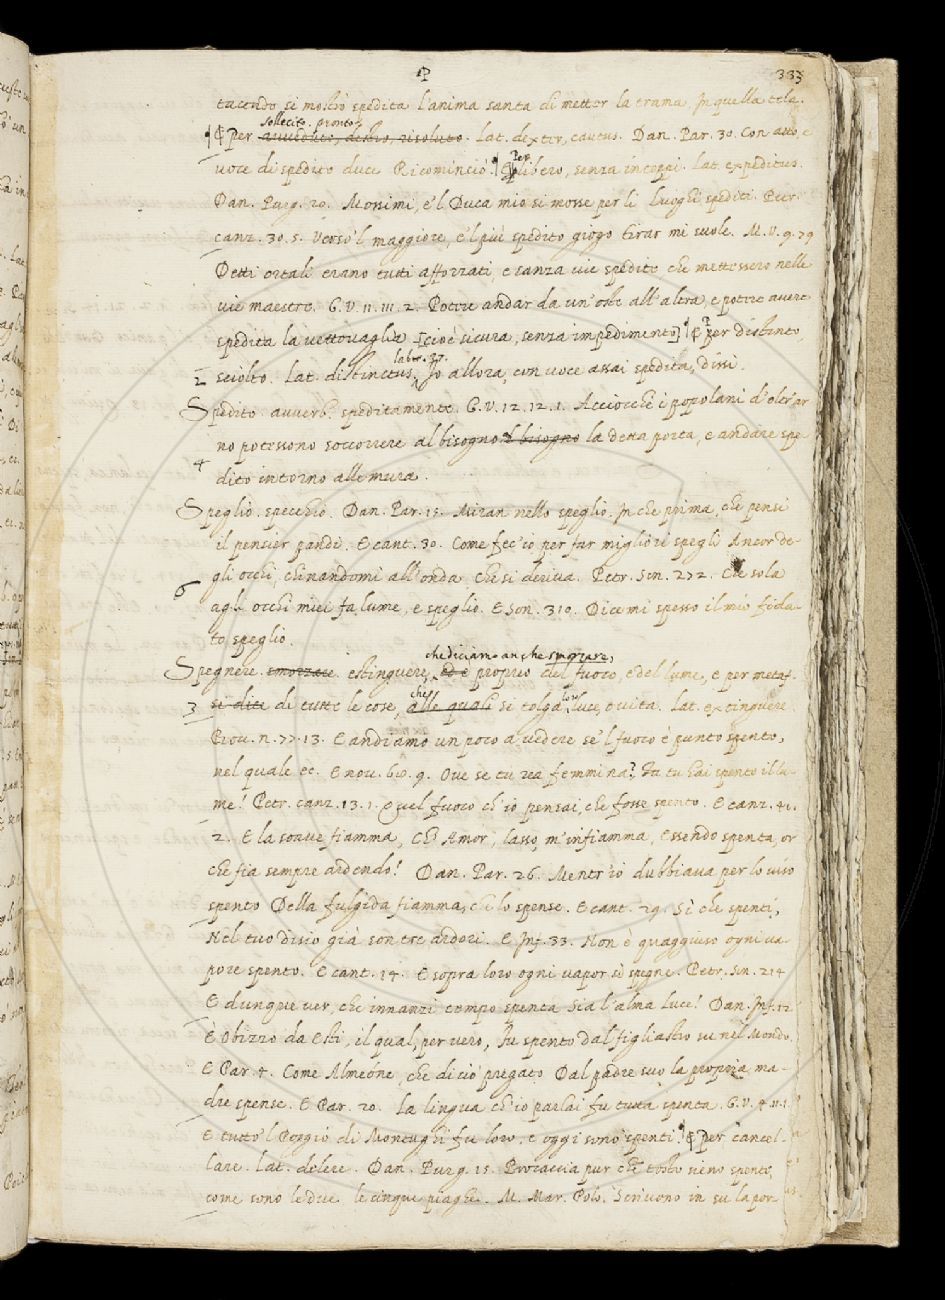 P
333
tacendo si mostrò spedita l'anima santa di metter la trama, In quella tela.
sollecito. pronto.
E per avveduto, destro, risoluto. Lat. dexter, cautus. Dan. Par. 30. Con atto, e
voce di spedito duce Ricominciò. E Per libero, senza intoppi. Lat. expeditus.
Dan. Purg. 20. Mossimi, e'l Duca mio si mosse per li luoghi spediti. Petr.
canz. 30. 5. Verso'l maggiore, e'l più spedito giogo tirar mi suole. M. V. 9. 29
Detti ortali erano tutti afforzati e sanza vie spedite che mettessero nelle
vie maestre. G. V. 11. 111. 2. Potere andar da un' oste all'altra, e potere avere
spedita la vettovaglia [cioè sicura, senza impedimento] E per distinto,
2 sciolto. Lat. distinctus. Io allora, con voce assai spedita, dissi.
labr. 37.
Spedito. avverb. speditamente. G. V. 12. 12. 1. Acciocchè i popolani d'oltr'ar
no potessono soccorrere al bisogno il bisogno la detta porta, e andare spe
4 dito intorno alle mura.
Speglio. specchio. Dan. Par. 15. Miran nello speglio. In che prima, che pensi
il pensier pandi. E cant. 30. Come fec'io per far migliori spegli Ancor de
gli occhi, chinandomi all'onda, che si deriva. Petr. Son. 272. Che sola
6 agli occhi miei fu lume, e speglio. E Son. 310. Dicemi spesso il mio fida-
to speglio.
che diciamo anche smorzare,
Spegnere. smorzare. estinguere, ed è proprio del fuoco, e del lume, e per metaf.
3 si dice di tutte le cose, che alle quali si tolga lor luce, o vita. Lat. extinguere
Nov. n. 77. 13. E andiamo un poco a vedere se'l fuoco è punto spento,
nel quale ec. E nov. 60. 9. Ove se tu rea femmina? Tu tu hai spento il lu-
me! Petr. canz. 13. 1. Quel fuoco ch'io pensai, che fosse spento. E canz. 41.
2. E la soave fiamma, Ch'Amor, lasso, m'infiamma, Essendo spenta, or
che fia sempre ardendo! Dan. Par. 26. Mentr'io dubbiava per lo viso
spento Della fulgida fiamma, che lo spense. E cant. 29. Sì che spenti,
Nel tuo disio già son tre ardori. E Inf. 33. Non è quaggiuso ogni va-
pore spento. E cant. 14. E sopra loro ogni vapor si spegne. Petr. Son. 214
E dunque ver, che innanzi tempo spenta Sia l'alma luce! Dan. Inf. 12
È Obizzo da Esti, il qual, per vero, Fu spento dal figliastro su nel Mondo.
E Par. 4. Come Almeone, che di ciò pregato Dal padre suo la propria ma-
dre spense. E Par. 20. La lingua ch'io parlai fu tutta spenta. G. V. 4. 11. 1.
E tutto'l Poggio di Montughi fu loro, e oggi sono spenti. E per cancel-
lare. Lat. delere. Dan. Purg. 15. Procaccia pur che tosto sieno spente,
come sono le due le cinque piaghe. M. Mar. Polo. Scrivono in su la por